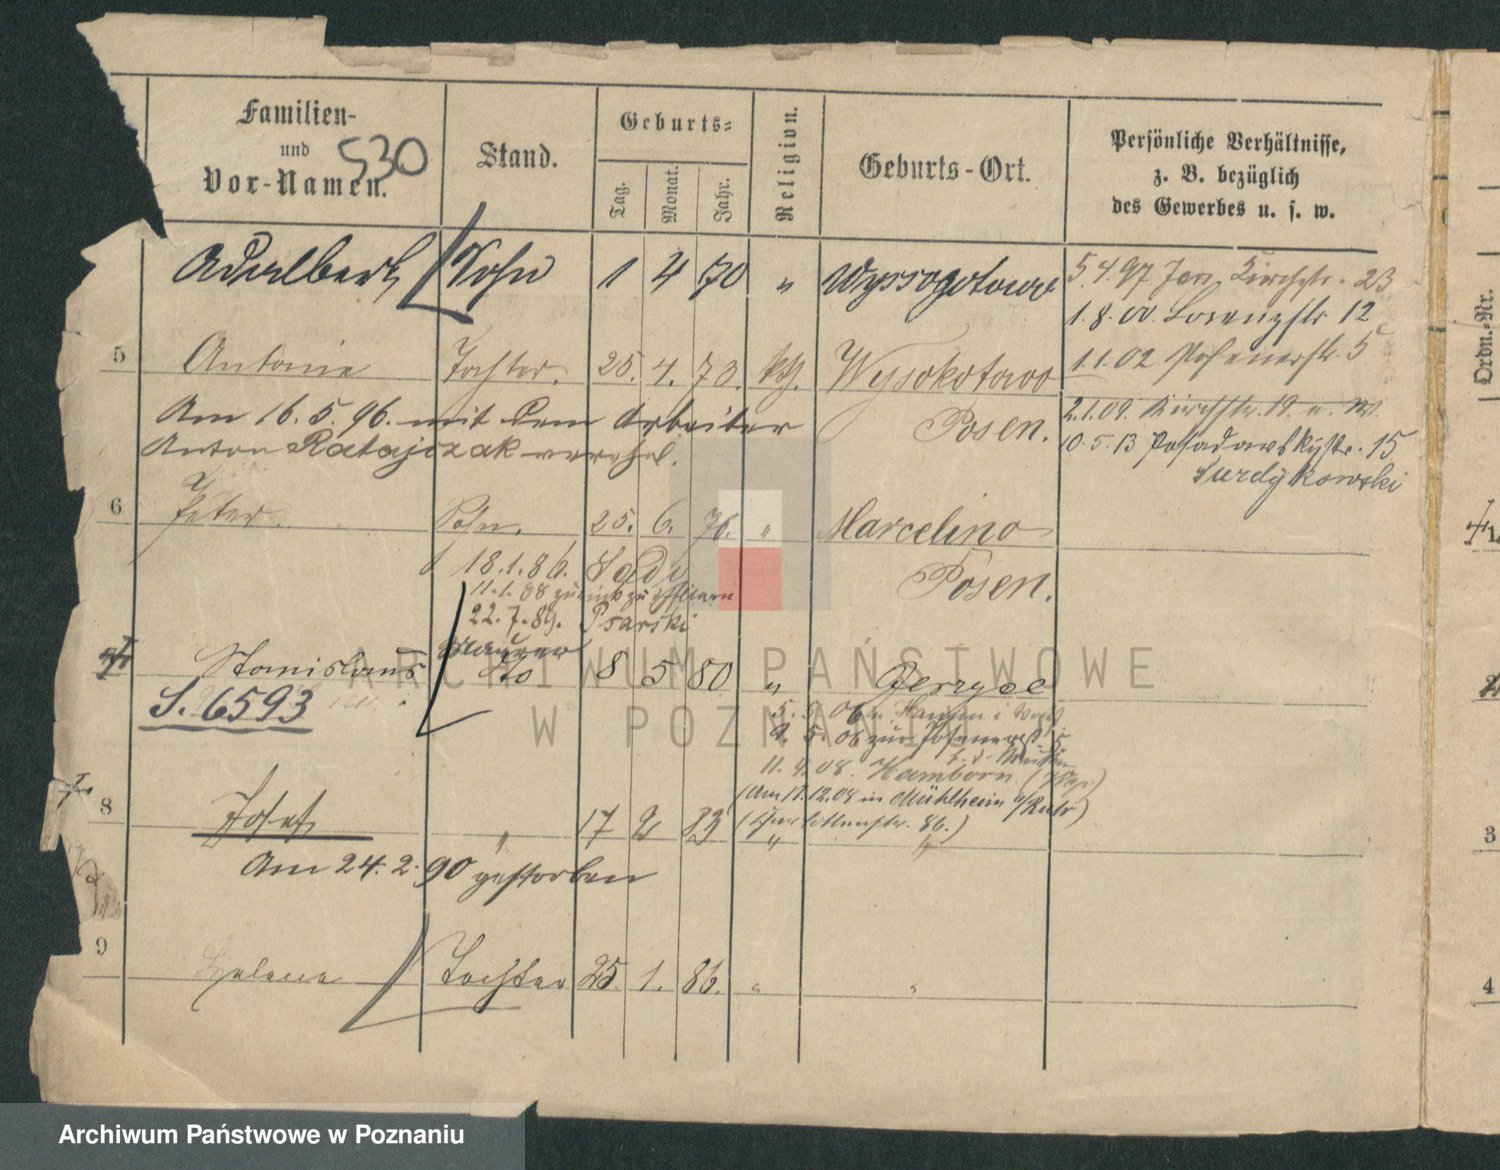 Familien-
und
Vor-Namen.
530
Stand.
Geburts-
Tag.
Monat.
Jahr.
Religion.
Geburts-Ort.
Persönliche Verhältnisse,
z. B. bezüglich
des Gewerbes u. s. w.
Adalbert Sohn 1 4 70 " Wyssogotowo
5.4.97 Jers. Kirchstr. 23
1.8.00. Lorenzstr 12
5 Antonie Tochter. 25. 4. 73. kth. Wysokotowo
Posen.
1.1.02 Posenerstr. 5
Am 16.5.96. mit dem Arbeiter
Anton Ratajczak verehel.
2.1.09. Kirchstr. 19.
10.5.13 Posadowskystr. 15
Surdykowski
6 Peter. Sohn. 25. 6. 76. " Marcelino
Posen.
18.1.86. Sady
11.1.88 zurück zu Eltern
22.7.89. Psarski
Maurer
Stanislaus dto 8 5 80 " Jerzyce
S. 6593
5.3.06 n. Hamm i
9.5.06 zur Posenerst 5
11.4.08. Hamborn
(Am 17.12.08 in Mühlheim a/Ruhr)
(Charlottenstr. 86.)
8 Josef " 17 2 83 " "
Am 24.2.90 gestorben
9 Helena Tochter 25. 1. 86. " "
Ordn.-Nr.
3
4
ARCHIWUM PAŃSTWOWE
W POZNANIU
Archiwum Państwowe w Poznaniu